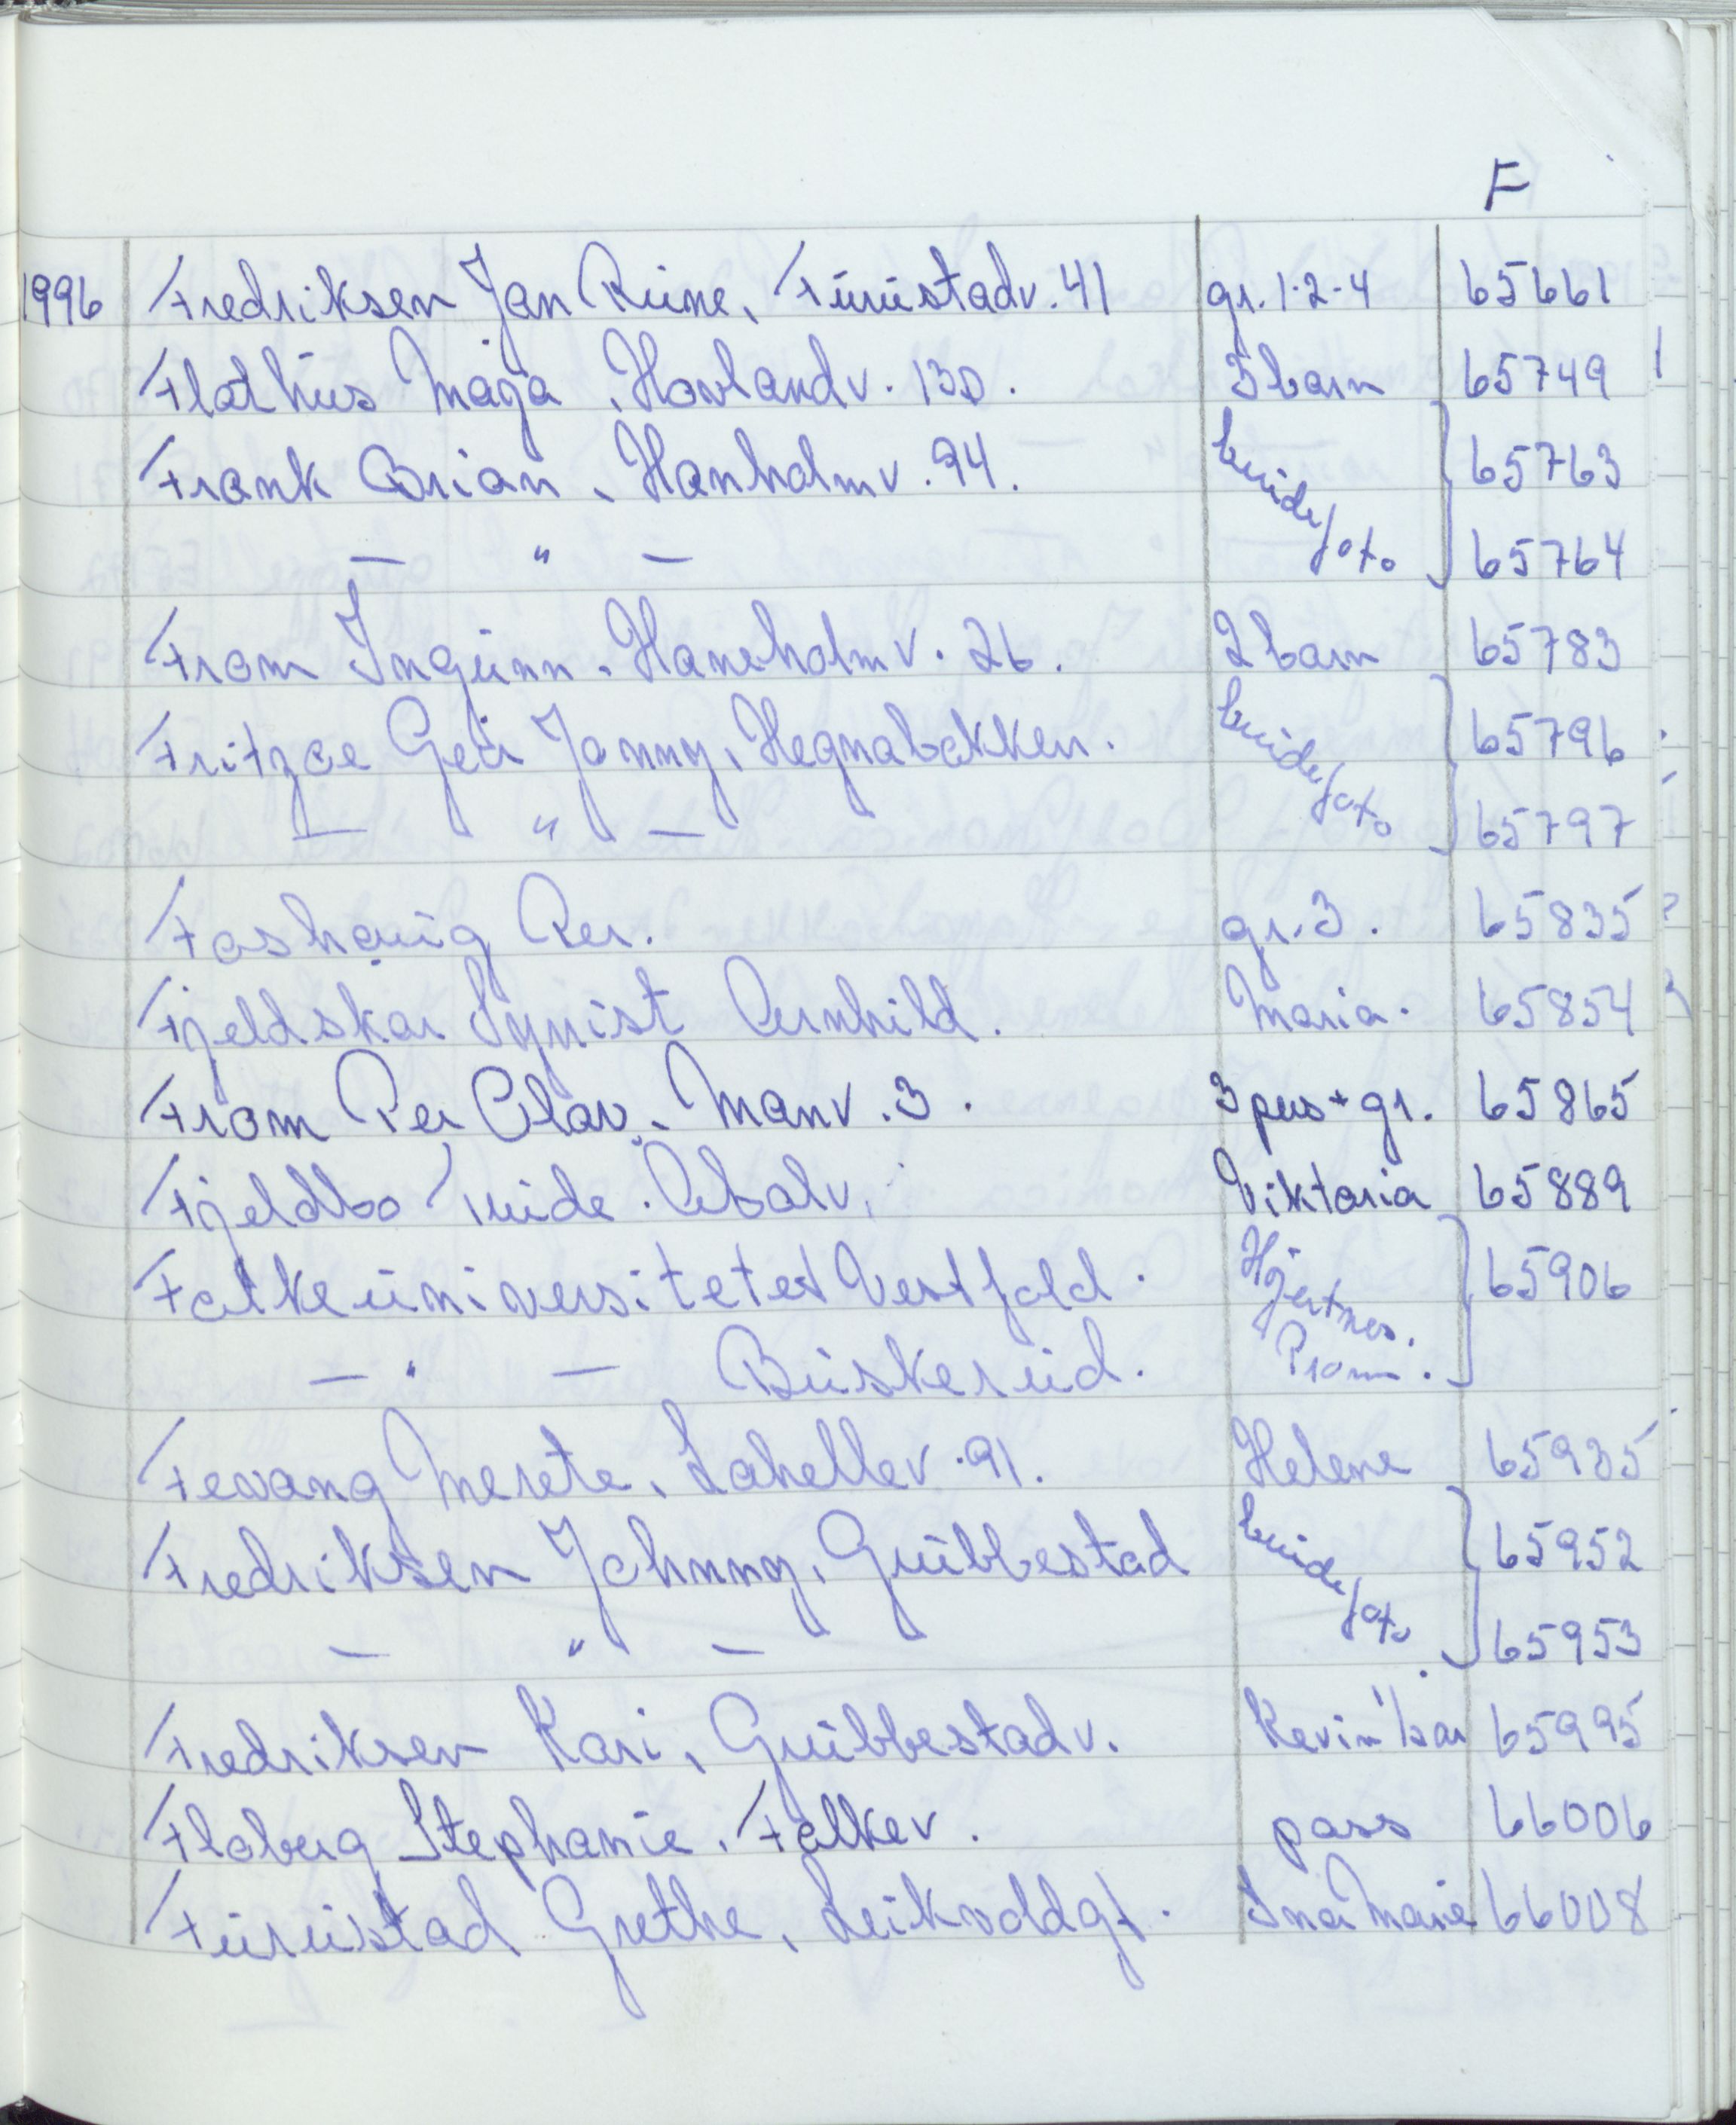 F
1996 Fredriksen Jan Rune, Furustadv. 41 gr. 1-2-4 65661
Flathus Maja, Hovlandv. 130. 3 barn 65749
Frank Brian, Hanholmv. 94. brude/foto 65763
— " — 65764
From Ingunn, Haneholmv. 26. 2 barn 65783
Fritzøe Geir Jonny, Hegnabakken. brude/foto 65796
— " — 65797
Foshaug Per. gr. 3. 65835
Fjeldskar Synist Arnhild. Maria. 65854
From Per Olav, Manv. 3. 3 pers + gr. 65865
Fjeldbo Tuide. Viktoria 65889
Folkeuniversitetet Vestfold. Hjertnes. 65906
— " — Buskerud. Prom.
Fevang Merete, Lahellev. 91. Helene 65935
Fredriksen Johnny, Grubbestad brude/foto 65952
— " — 65953
Fredriksen Kari, Grubbestadv. Kevin 1/2 år 65995
Floberg Stephanie, Falkev. pass 66006
Furustad Grethe, Leikvollgt. Ina Marie 66008